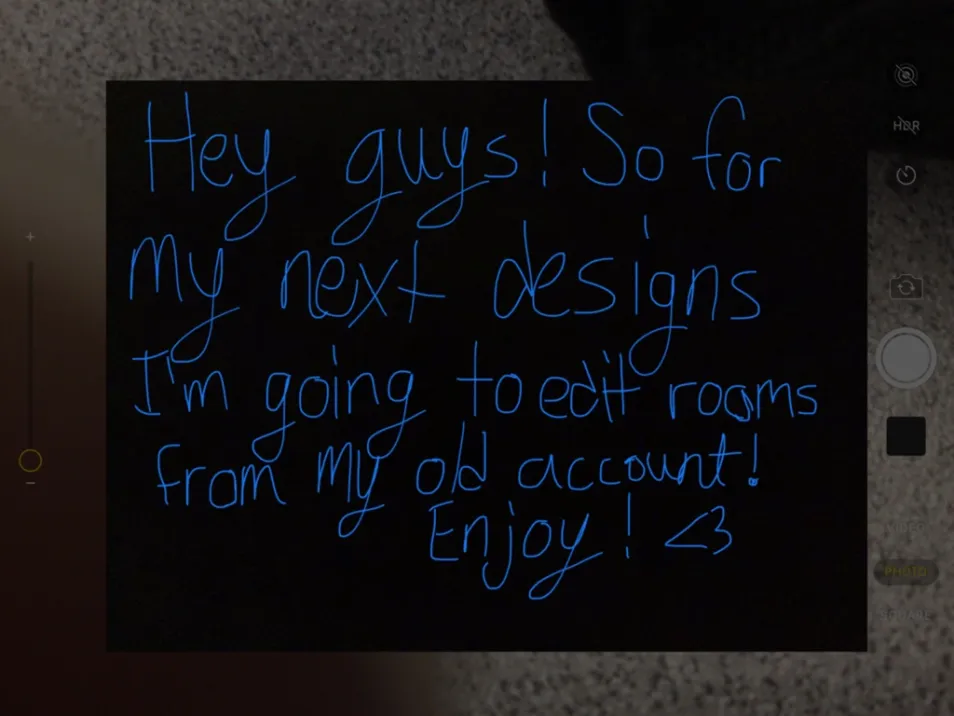 Hey guys! So for
my next designs
I'm going to edit rooms
from my old account!
Enjoy! <3
HDR
VIDEO
PHOTO
SQUARE